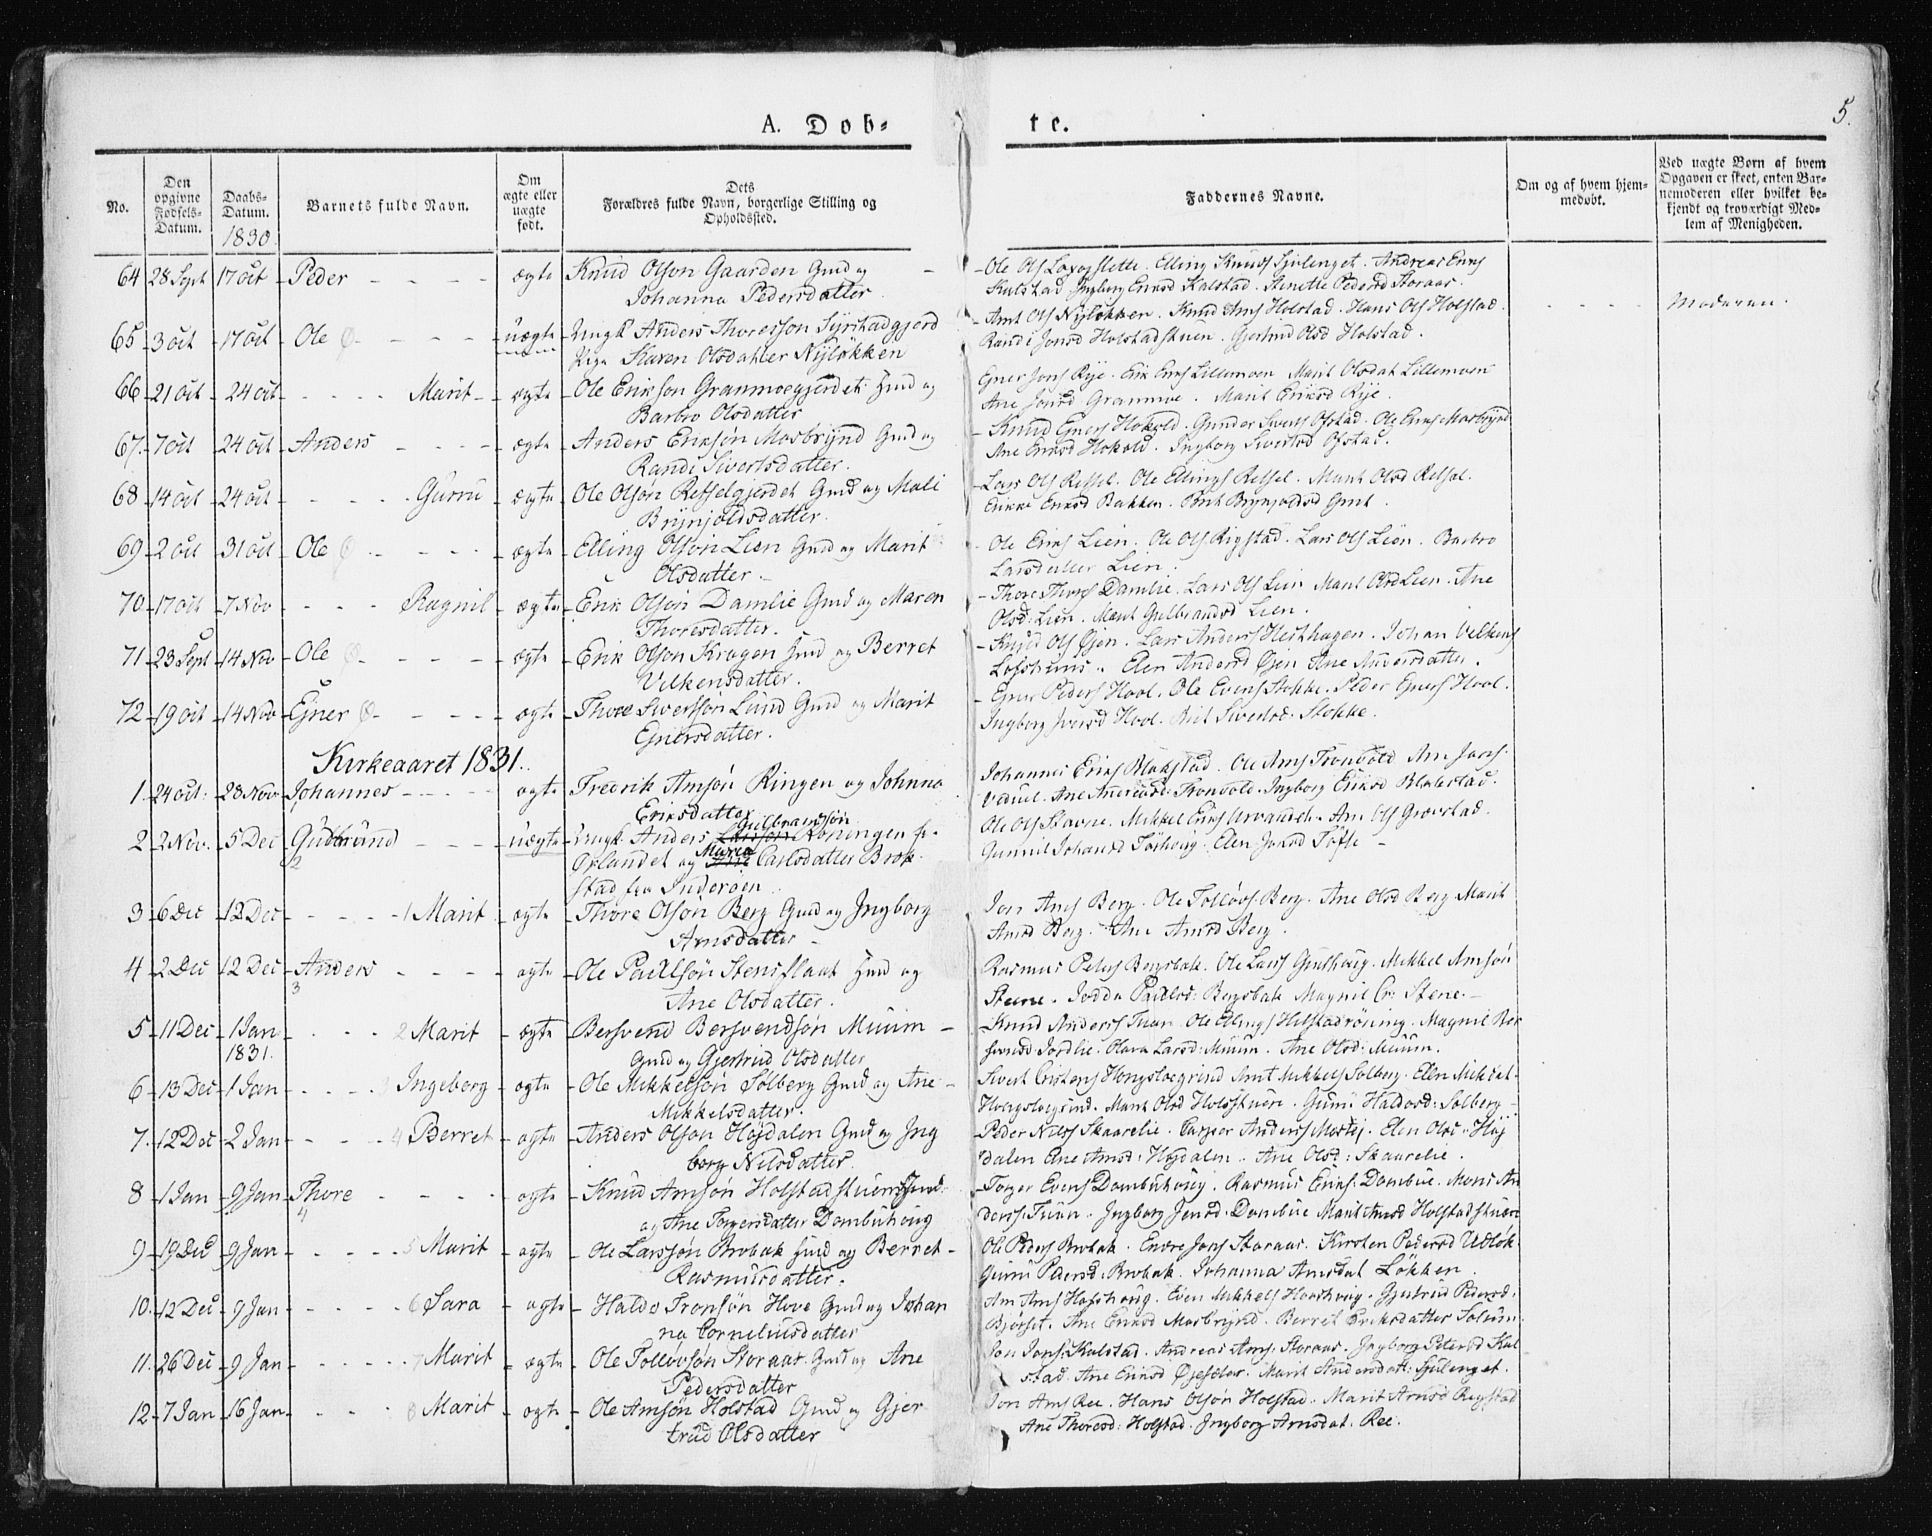 5.
A. Døb-
te.
No.
Den opgivne Fødsels-Datum.
Daabs-Datum.
1830
Barnets fulde Navn.
Om ægte eller uægte født.
Dets Forældres fulde Navn, borgerlige Stilling og Opholdssted.
Faddernes Navne.
Om og af hvem hjemmedøbt.
Ved uægte Børn af hvem Opgaven er skeet, enten Barnemoderen eller hvilket bekjendt og troværdigt Medlem af Menigheden.
64 28 Sept 17 Oct Peder - - - - ægte Knud Olson Gaarden Gmd og
Johanna Pedersdatter
Ole Ols Elling Knuds Andreas Enks
Ingborg Eriksd Kalstad Pedersd Storaas
65 3 Oct 17 Oct Ole - - - - uægte Ungk Anders Thoresson
Pige Karen Olsdatter Nyløkken
Arnt Ols Nyløkken. Knud Arns Holstad. Hans Ols Holstad.
Randi Jonsd Holstadstuen. Gjertrud Olsd Holstad.
Moderen.
66 21 Oct 24 Oct - - - - Marit ægte Ole Erikson Granmoegjerdet Hmd og
Barbro Olsdatter
Ejner Jons Rye. Erik Eriks Lillemoen Marit Olsdat Lillemoen
Ane Jonsd Granmoe. Marit Eriksd Rye.
67. 7 Oct 24 Oct Anders - - - - ægte Anders Eriksøn Mosbrynd Gmd og
Randi Sivertsdatter.
Knud Ejners Hokold. Gunder Siverts Ofstad. Ole Eriks Mosbrynd
Ane Eriksd Hokold. Ingborg Sivertsd Ofstad.
68 14 Oct 24 Oct - - - - Gurru ægte Ole Olsøn Resselgjerdet Gmd og Mali
Brynjoldsdatter.
Lars Ols Ressel. Ole Ellings Ressel. Marit Olsd Ressel.
Eriksd Bakken. Brit Brynjoldsd
69 2 Oct 31 Oct Ole - - - - ægte Elling Olsøn Lien Gmd og Marit
Olsdatter
Ole Eriks Lien. Ole Ols Rigstad. Lars Ols Lien. Barbro
Larsdatter Lien.
70 17 Oct 7 Nov - - - Ragnil ægte Erik Olsøn Damlie Gmd og Maren
Thoresdatter.
Thore Thores Damlie. Lars Ols Lien Marit Olsd Lien. Ane
Olsd: Lien. Marit Gulbrandsd Lien.
71 23 Sept 14 Nov Ole - - - - ægte Erik Olson Kragen Hmd og Berret
Vilkensdatter.
Knud Ols Øjen. Lars Anders Hesthagen. Johan Velkens
Elen Andersd Øjen Ane Andersdatter.
72 19 Oct 14 Nov Ejner - - - ægte Thore Sivertsøn Lund Gmd og Marit
Ejnersdatter.
Ejner Peders Hool. Ole Evens Stokke. Peder Ejners Hool.
Ingborg Iversd Hool. Brit Sivertsd: Stokke.
Kirkeaaret 1831.
1. 24 Oct. 28 Nov Johannes - - - - ægte Fredrik Arnsøn Ringen og Johnna
Eriksdatter
Johannes Eriks Blakstad. Ole Arns Tronvold
Ane Andersd: Tronvold. Ingborg Eriksd Blakstad.
2 2 Nov. 5 Dec Gudbrand - - - uægte Ungk. Anders Gulbrandsøn Roningen fr.
Ørlandet og Maria Carlsdatter Brok-
stad fra Inderøen
2
Ole Ols Stavne. Mikkel Eriks Arn Ols Grøvstad.
Gunnil Johansd Elen Jonsd Tofte
3 6 Dec 12 Dec - - - - 1 Marit ægte Thore Olsøn Berg Gmd og Ingborg
Arnsdatter
Jon Arns Berg. Ole Følløvs: Berg. Ane Olsd Berg Marit
Arnsd Berg. Ane Arnsd Berg.
4 2 Dec 12 Dec Anders - - - - ægte Ole Paulsøn Stensflaat Hmd og
Ane Olsdatter.
3
Rasmus Peders Bergsbak. Ole Lars Mikkel Arnsøn
Steene. Paulsd: Bergsbak Magnil Stene.
5 11 Dec 1 Jan 1831. - - - 2 Marit ægte Bersvend Bersvendsøn Muum
Gmd og Gjertrud Olsdatter
Knud Anders Ole Ellings Holstadrøning. Magnil Ber
svensd Jordlie. Olava Larsd: Muum. Ane Olsd: Muum.
6 13 Dec 1 Jan - - - - 3 Ingeborg ægte Ole Mikkelsøn Solberg Gmd og Ane
Mikkelsdatter.
Sivert Cristens Arnt Mikkels Solberg. Elen Mikkel-
Marit Olsd Holsstuen. Guru Haldosd: Solberg
7. 12 Dec 2 Jan - - - 4 Berret ægte Anders Olson Højdalen Gmd og Ing
borg Nilsdatter.
Peder Nils Skaarelie. Casper Anders Elen Olsd: Høj
dalen Ane Arnsd: Højdalen. Ane Olsd: Skaarelie.
8 1 Jan 9 Jan Thore - - - - ægte Knud Arnsøn Holstadstuen Hmd
og Ane Torgersdatter Dombuhoug
4
Torger Evens Dombuhoug. Rasmus Eriks: Dombue. Mons An
ders: Ingborg Jensd: Dombue Marit Arnsd Holstadstuen
9 19 Dec 9 Jan - - - - 5 Marit ægte Ole Larssøn Brobak Hmd og Berret
Rasmusdatter.
Ole Peders Brobak. Endre Jons Storaas. Kirsten Pedersd Udløk
Guru Pedersd. Brobak. Johanna Arnsdat Løkken.
10. 12 Dec 9 Jan - - - - 6 Sara ægte Haldo Tronsøn Hove Gmd og Johan
na Corneliusdatter
Arn Arns Hofshoug. Even Mikkels Gjertrud Pedersd.
Bjørset. Ane Eriksd Mosbrynd. Berret Eriksdatter Solum
11. 26 Dec 9 Jan - - - - 7 Marit ægte Ole Følløvsøn Storaas. Gmd og Ane
Pedersdatter
Jon Jons: Kalstad. Andreas Arns: Storaas. Ingborg Petersd Kal
stad. Ane Eriksd Marit Andersdatt: Sjulenget.
12 7 Jan 16 Jan - - - 8 Marit ægte Ole Arnsøn Holstad Gmd og Gjer
trud Olsdatter
Jon Arns Ree. Hans Olsøn Holstad. Marit Arnsd Regstad
Ane Thoresd: Holstad. Ingborg Arnsdat. Ree.